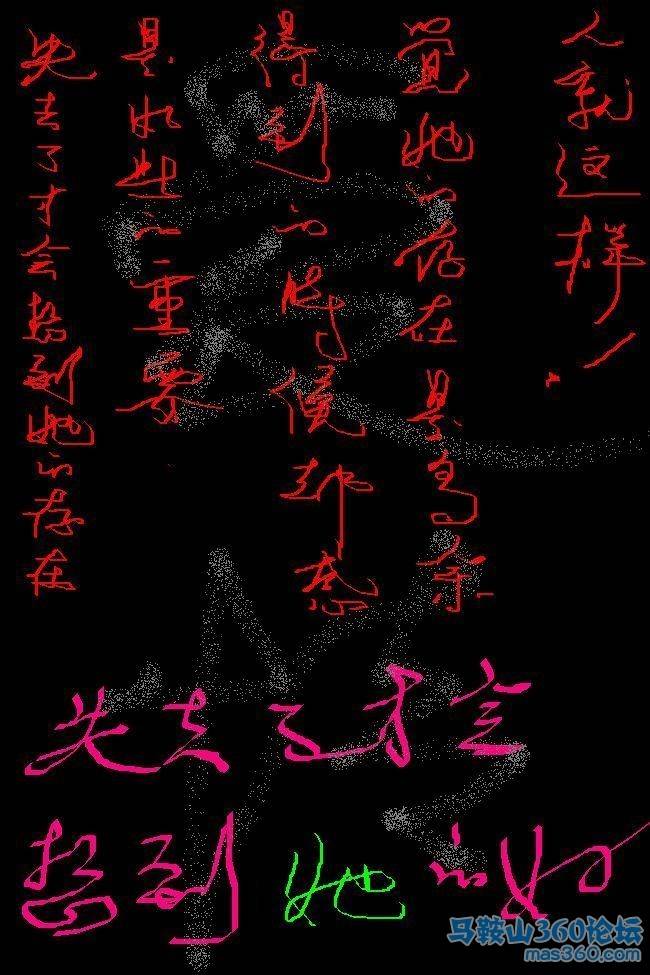 失去了才会想到她的存在
是如此的重要
得到的时候却感
觉她的存在是多余
人就这样!
失去了才会
想到她的好
马鞍山360论坛
mas360.com